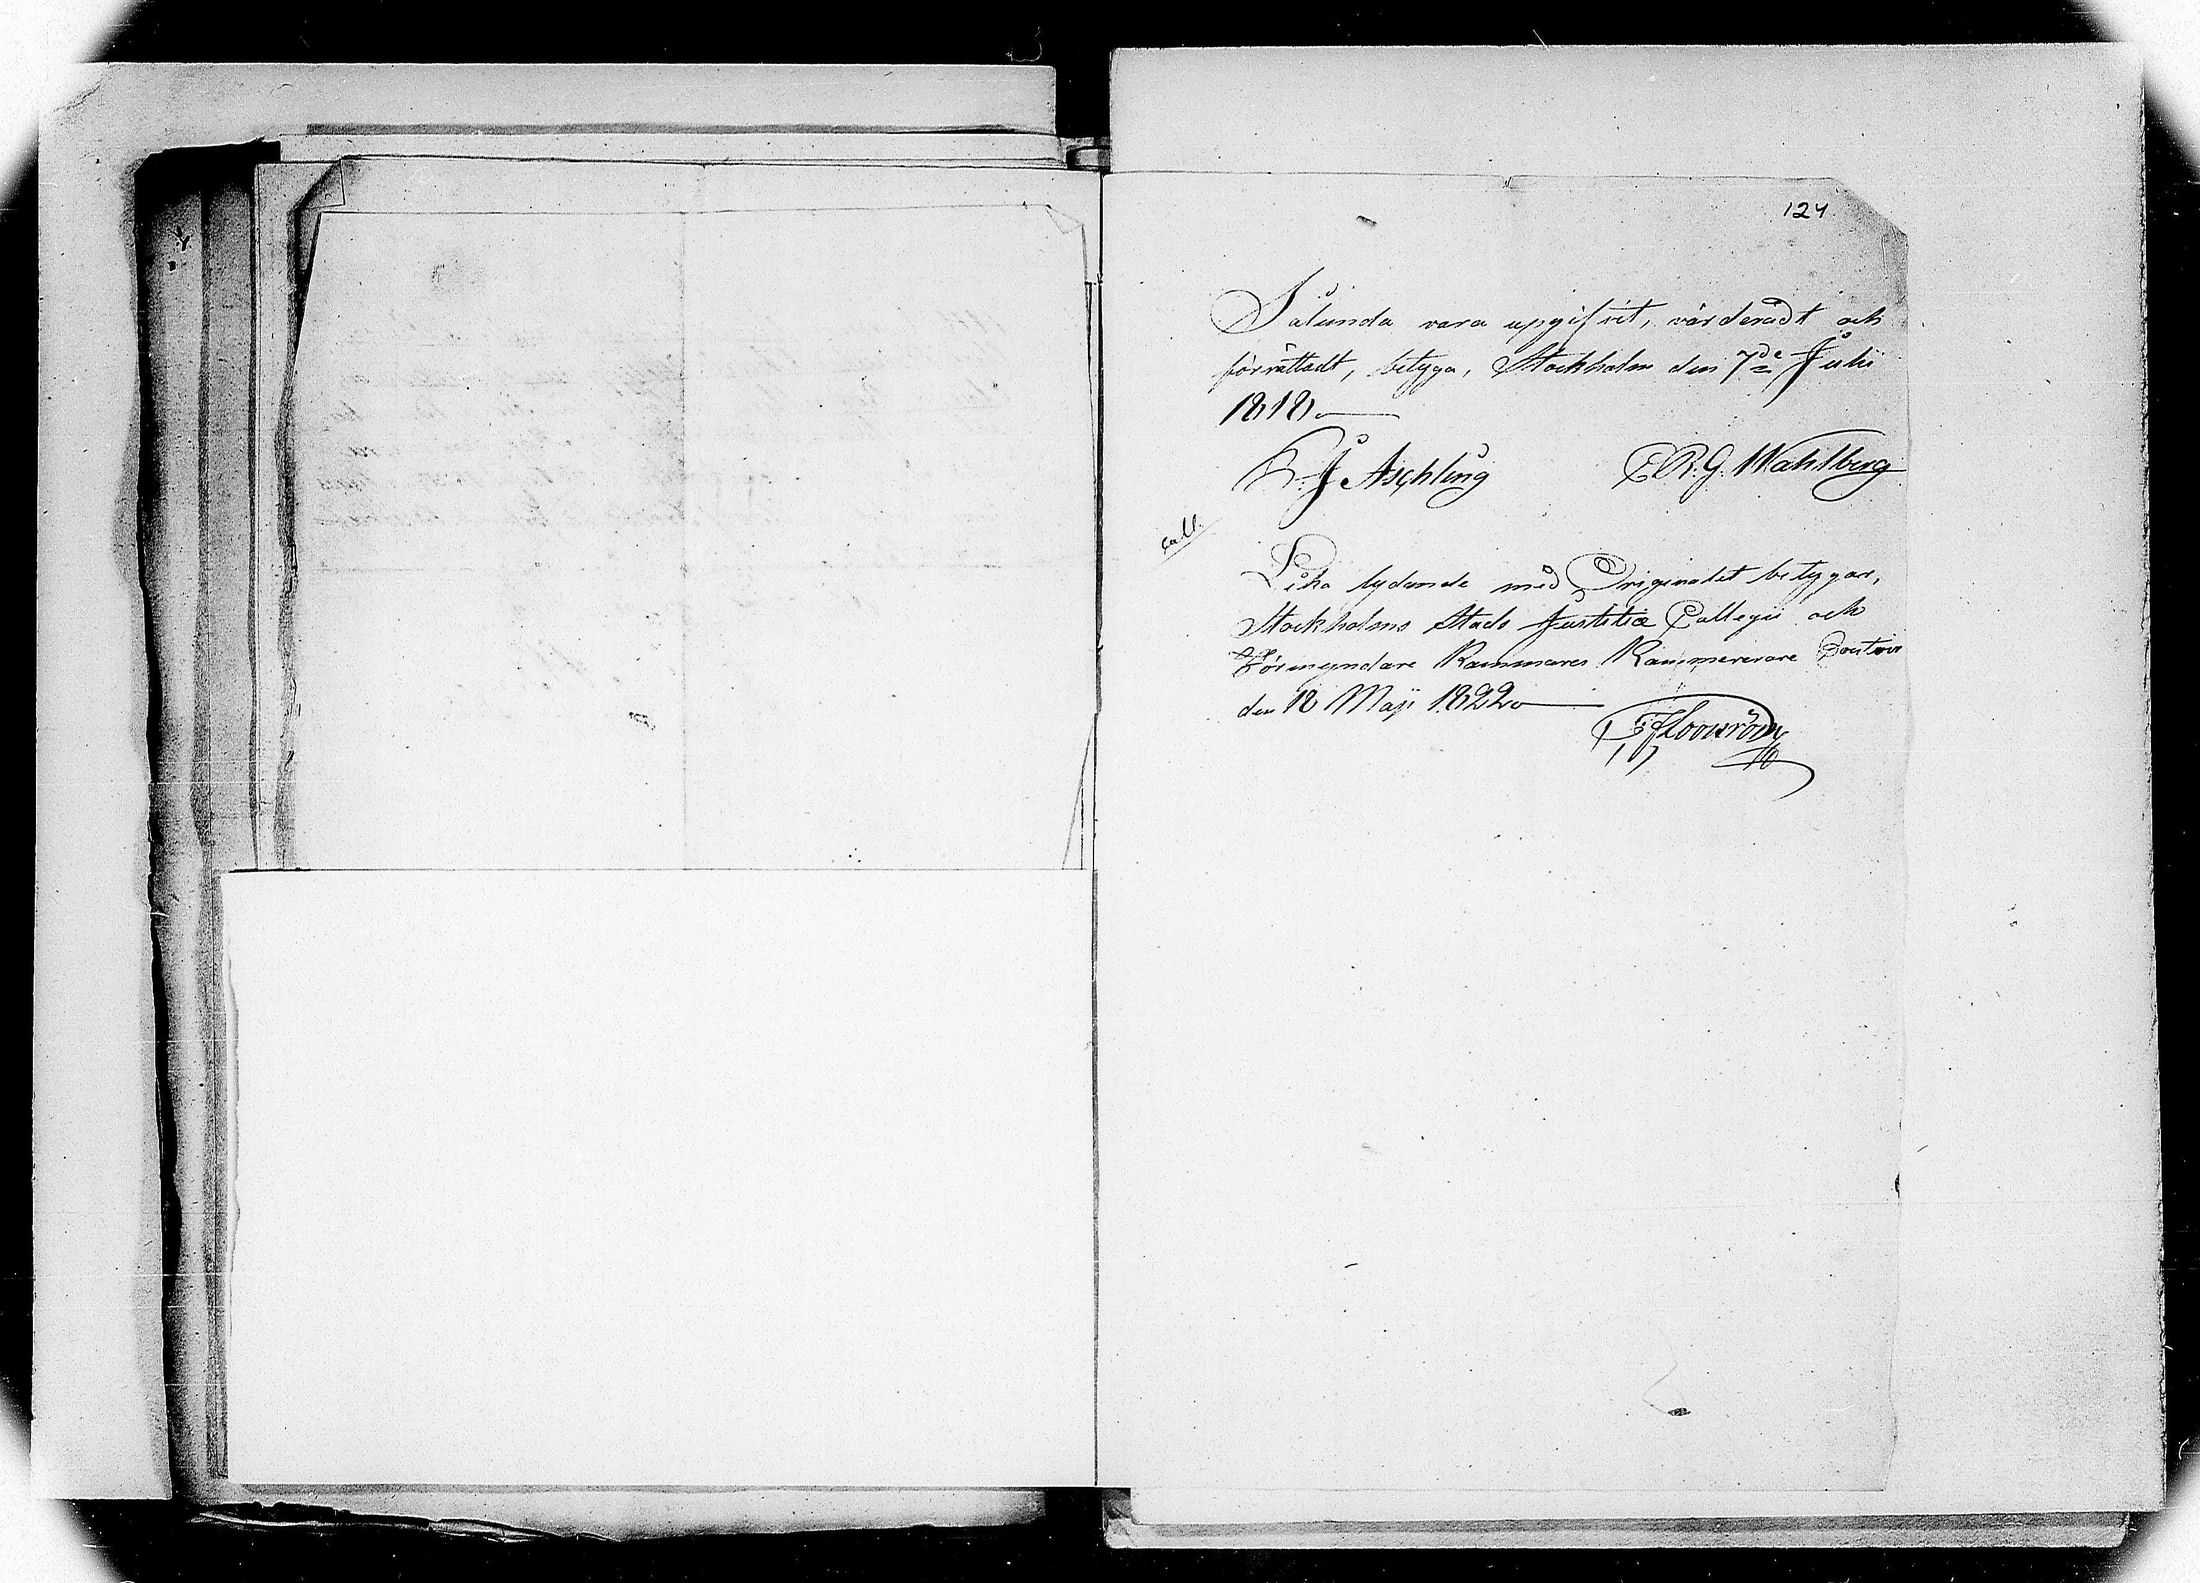 124
Sålunda vara upgifvit, värderadt och
förrättadt, betyga, Stockholm den 7de Julii
1818.
J Aschling C.R.G. Wahlberg
Coll.
Lika lydande med Originalet betygar,
Stockholms Stads Justitiæ Collegii och
Förmyndare Kammares Kammererare Contoir
den 18 Maji 1822